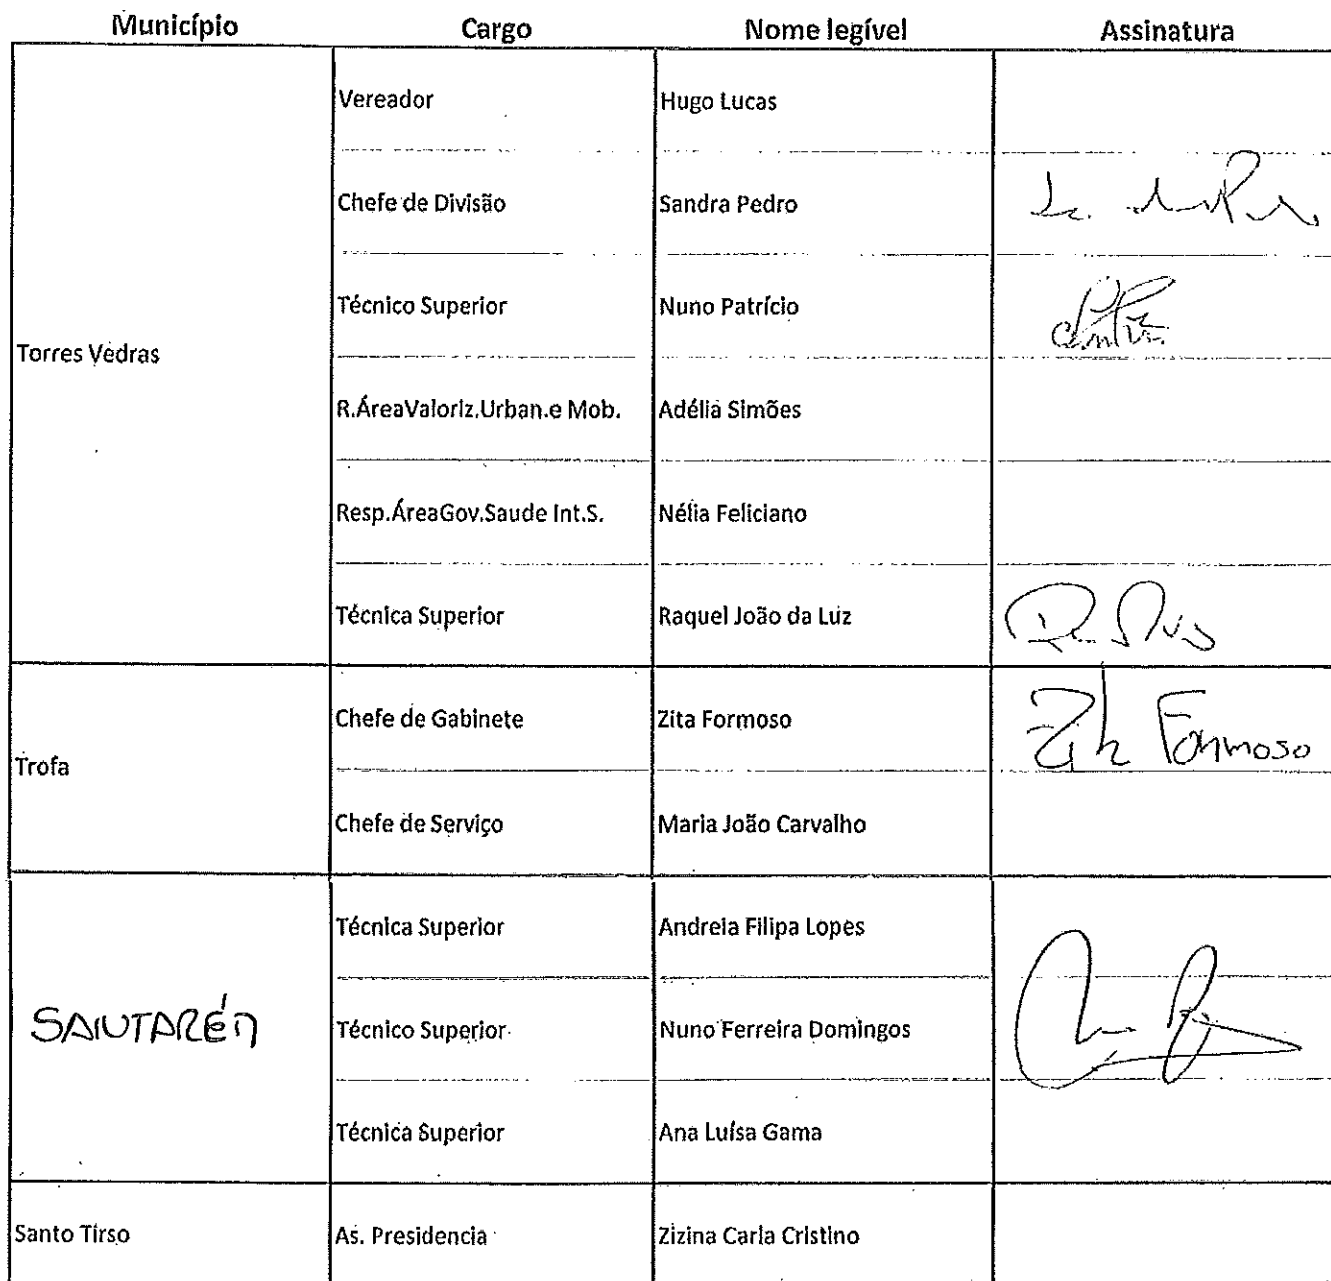 Município Cargo Nome legível Assinatura
Vereador Hugo Lucas
Chefe de Divisão Sandra Pedro
Técnico Superior Nuno Patrício
Torres Vedras
R.ÁreaValoriz.Urban.e Mob. Adélia Simões
Resp.ÁreaGov.Saude Int.S. Nélia Feliciano
Técnica Superior Raquel João da Luz
Chefe de Gabinete Zita Formoso Zita Formoso
Trofa
Chefe de Serviço Maria João Carvalho
Técnica Superior Andreia Filipa Lopes
SANTARÉM Técnico Superior Nuno Ferreira Domingos
Técnica Superior Ana Luísa Gama
Santo Tirso As. Presidencia Zizina Carla Cristino